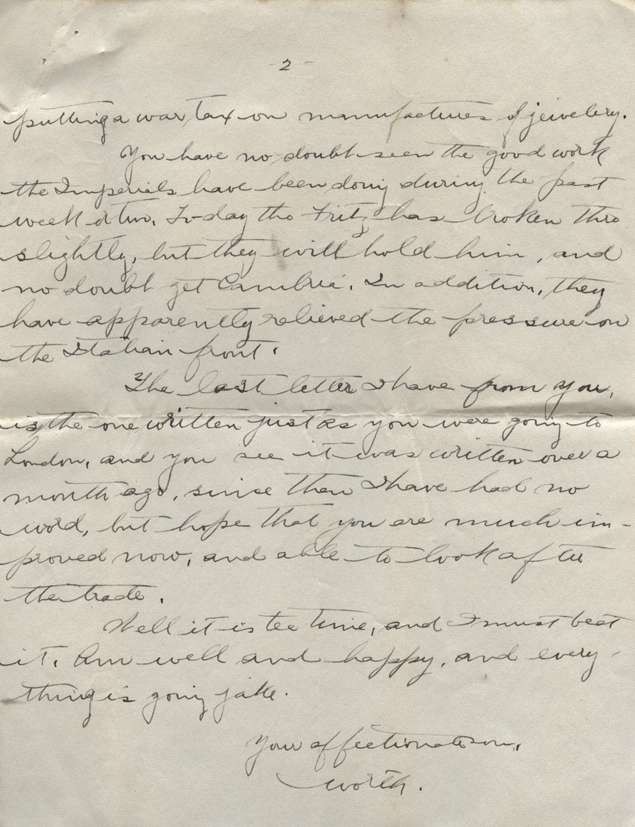 - 2 -
putting a war tax on manufactures of jewelery.
You have no doubt seen the good work
the Imperials have been doing during the past
week or two. To-day the Fritz has broken thro
slightly, but they will hold him, and
no doubt get Cambrai. In addition, they
have apparently relieved the pressure on
the Italian front.
The last letter I have from you,
is the one written just as you were going to
London, and you see it was written over a
month ago, since then I have had no
word, but hope that you are much im-
proved now, and able to look after
the trade.
Well it is tee time, and I must beat
it. Am well and happy, and every-
thing is going jake.
Your affectionate son,
Worth.